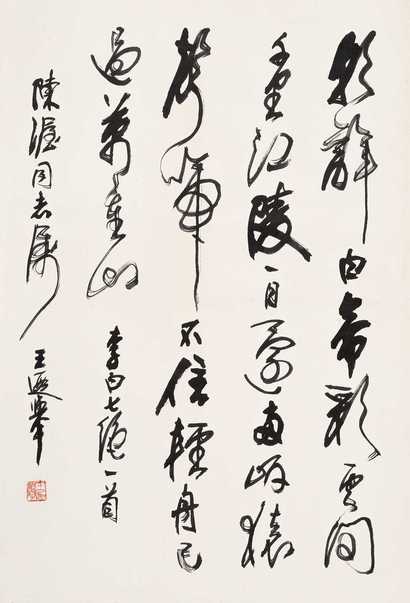 朝辭白帝彩雲間
千里江陵一日還兩岸猿
聲啼不住輕舟已
過萬重山 李白七絕一首
陳渥同志屬 王遐舉